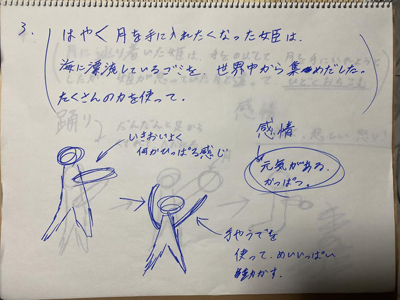 3.
はやく月を手に入れたくなった女姫は、
海に漂流しているゴミを、世界中から集めだした。
たくさんの力を使って。
いきおいよく
何かひっぱる感じ
感情
元気がある。
かっぱつ。
手やうでを
使って、めいいっぱい
動かす。
踊り